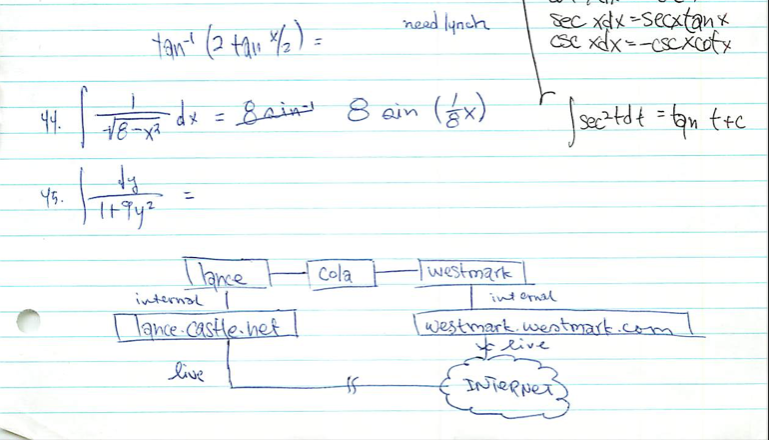 need lynch
tan⁻¹ (2 tan x/2) =
sec xdx = secxtanx
csc xdx = -cscxcotx
44. ∫ 1/√8-x² dx = 8 sin (1/8 x)
∫ sec²tdt = tan t+c
45. ∫ dy/1+9y² =
lance cola westmark
internal internal
lance.castle.net westmark.westmark.com
live live
INTERNET